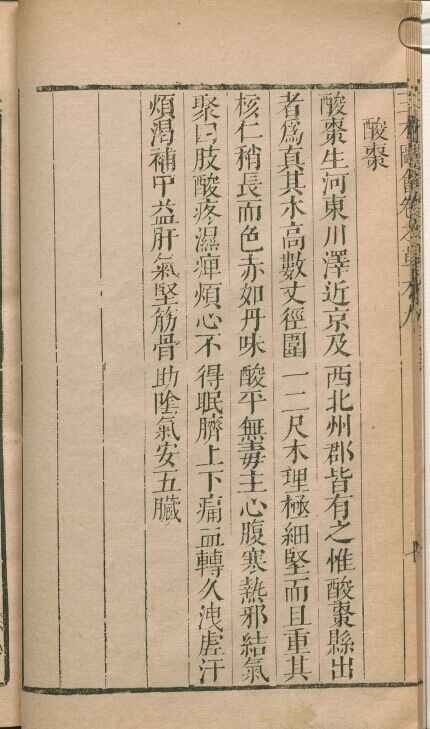 酸棗
酸棗生河東川澤近京及西北州郡皆有之惟酸棗縣出
者為真其木高數丈徑圍一二尺木理極細堅而且重其
核仁稍長而色赤如丹味酸平無毒主心腹寒熱邪結氣
聚四肢酸疼濕痺煩心不得眠臍上下痛血轉久洩虛汗
煩渴補中益肝氣堅筋骨助陰氣安五臟